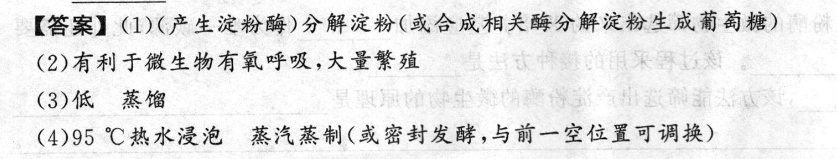 【答案】(1)(产生淀粉酶)分解淀粉(或合成相关酶分解淀粉生成葡萄糖)
(2)有利于微生物有氧呼吸,大量繁殖
(3)低 蒸馏
(4)95 ℃热水浸泡 蒸汽蒸制(或密封发酵,与前一空位置可调换)